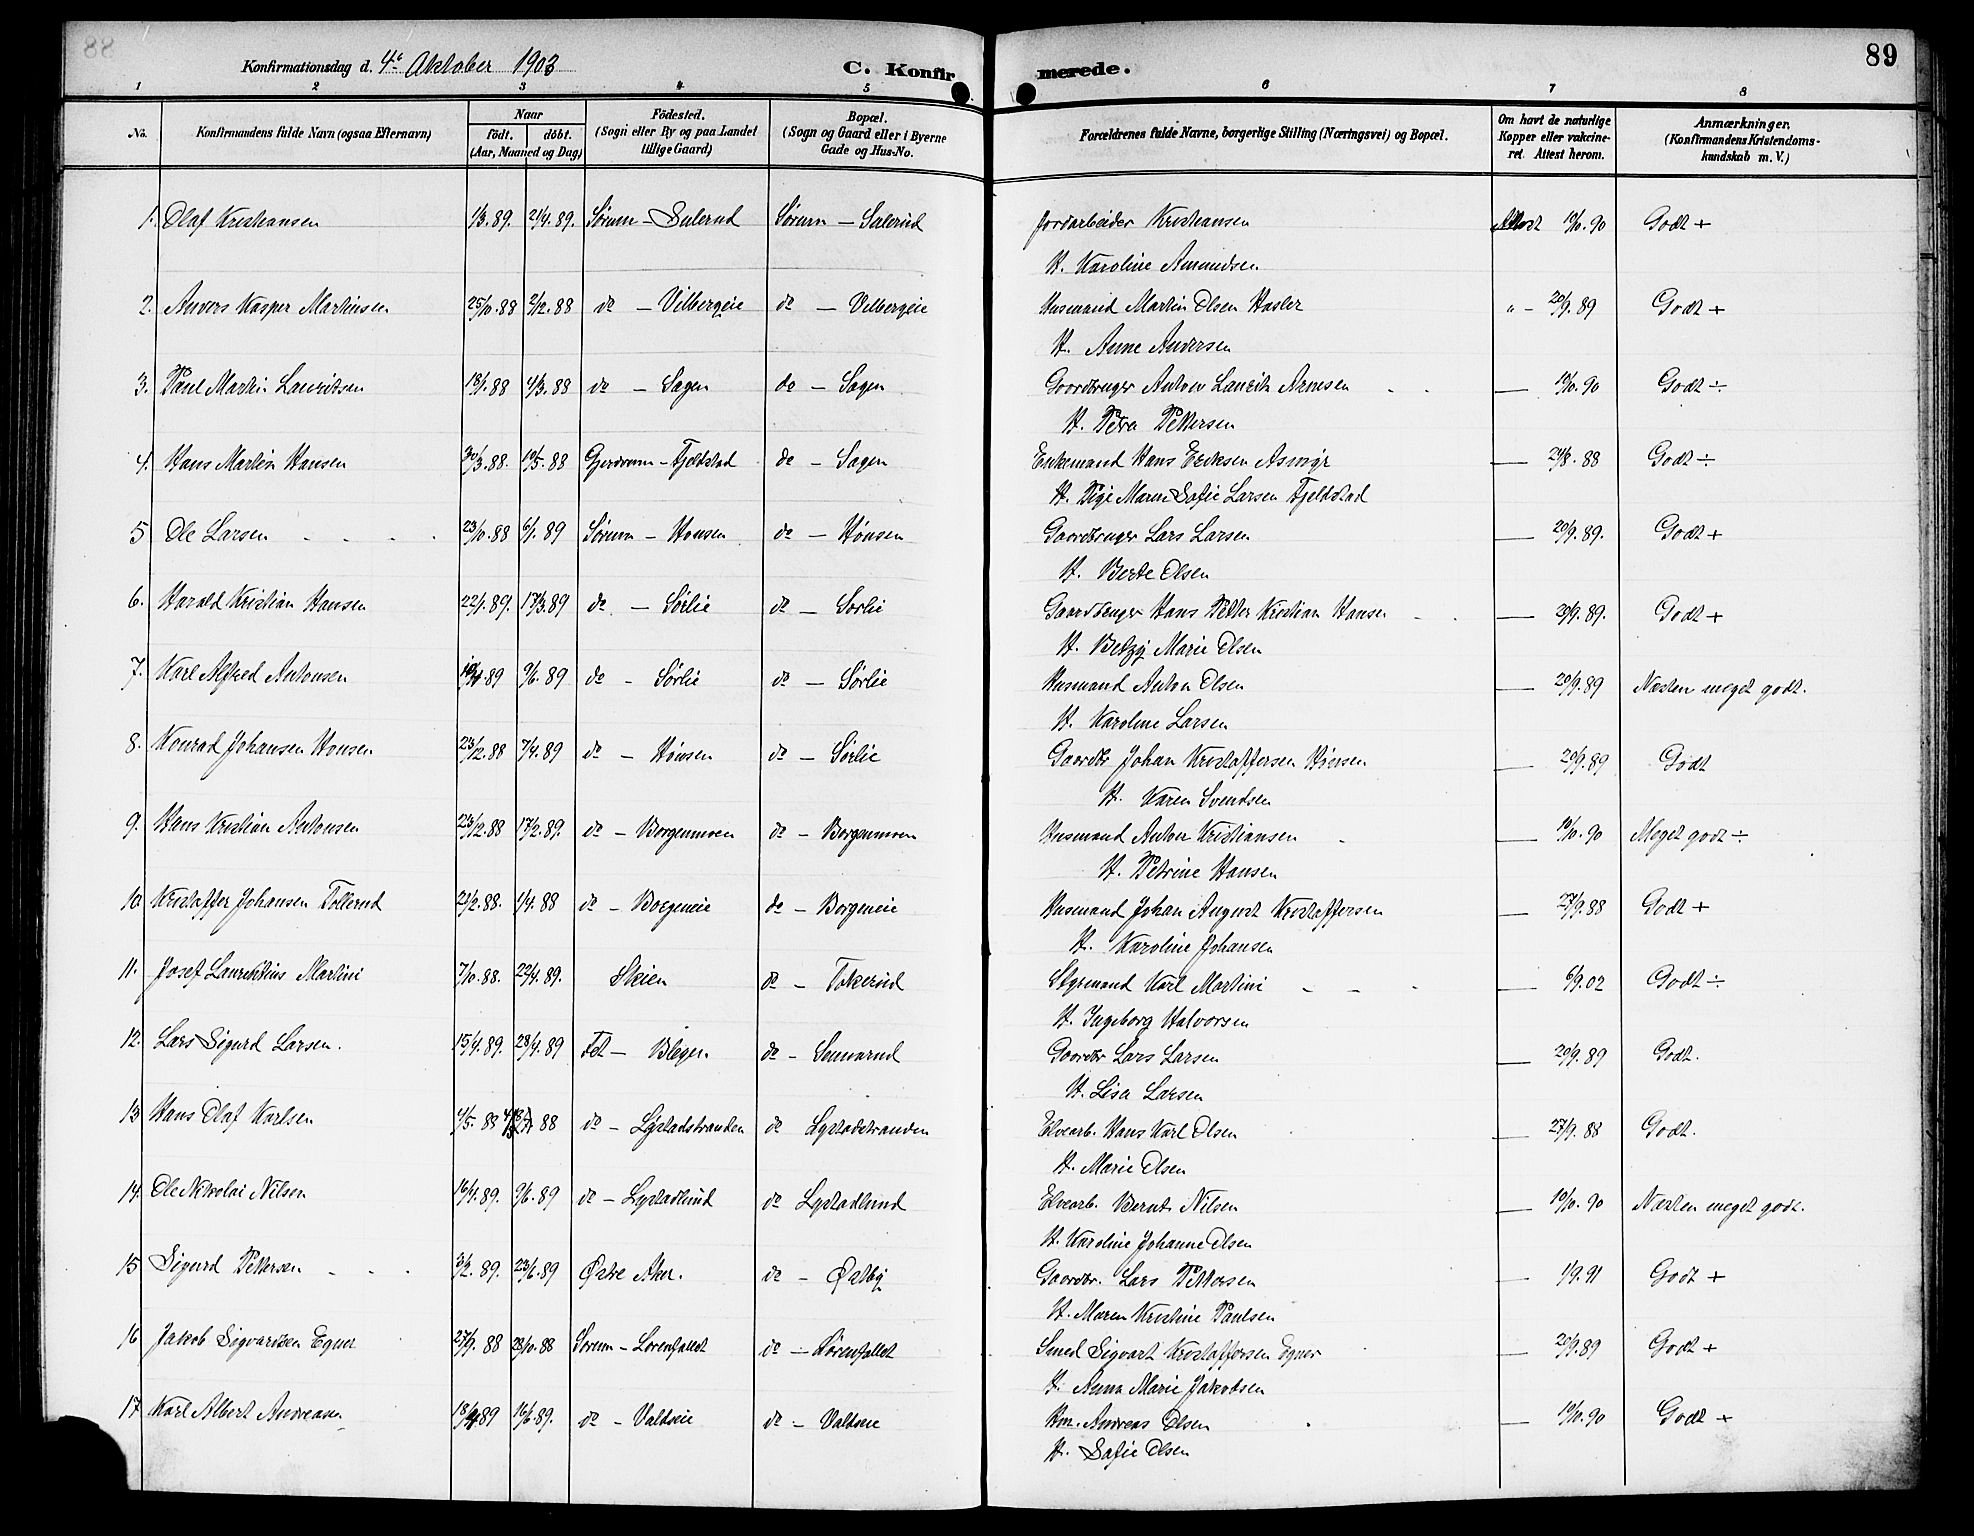 88
89
Konfirmationsdag d. 4de Oktober 1903
C. Konfirmerede.
1 2 3 4 5 6 7 8
No. | Konfirmandens fulde Navn (ogsaa Efternavn) | Naar født. døbt. (Aar, Maaned og Dag) | Fødested. (Sogn eller By og paa Landet tillige Gaard) | Bopæl. (Sogn og Gaard eller i Byerne Gade og Hus-No. | Forældrenes fulde Navne, borgerlige Stilling (Næringsvei) og Bopæl. | Om havt de naturlige Kopper eller vakcineret. Attest herom. | Anmærkninger. (Konfirmandens Kristendomskundskab m. V.)
1. Olaf Kristiansen 1/3.89. 21/4.89. Sørum - Salerud Sørum - Salerud Jordarbeider Kristiansen Attest 10/10.90 Godt +
H. Karoline Amundsen
2. Anders Kasper Martinsen 25/10.88 2/12.88 do - Vilbergeie do - Vilbergeie Husmand Martin Olsen Hasler " - 20/9.89 Godt +
H. Anne Andersen
3. Paul Martin Lauritsen 18/1.88 4/3.88 do - Sagen do - Sagen Gaardbruger Anton Lauritz Arnesen — 10/10.90 Godt ÷
H. Petra Pettersen
4. Hans Martin Hansen 30/3.88. 10/5.88 Gjerdrum - Fjeldstad do - Sagen Enkemand Hans Eriksen — 24/8.88 Godt ÷
H. Pige Maren Sofie Larsen Fjeldstad
5 Ole Larsen 23/10.88 6/1.89 Sørum - Hønsen do - Hønsen Gaardbruger Lars Larsen — 20/9.89. Godt +
H. Berte Olsen
6. Harald Kristian Hansen 22/1.89. 17/3.89 do - Sørlie do - Sørlie Gaardbruger Hans Petter Kristian Hansen — 20/9.89. Godt +
H. Betzy Marie Olsen
7. Karl Alfred Antonsen 10/4.89 9/6.89 do - Sørlie do - Sørlie Husmand Anton Olsen — 20/9.89 Næsten meget godt.
H. Karoline Larsen
8. Konrad Johansen Hønsen 23/12.88 7/4.89 do - Hønsen do - Sørlie Gaardbr Johan Kristoffersen Hønsen — 20/9.89 Godt
H. Karen Svendsen
9. Hans Kristian Antonsen 23/12.88 17/2.89. do - Borgenmoen do - Borgenmoen Husmand Anton Kristiansen — 10/10.90 Meget godt ÷
H. Petrine Hansen
10 Kristoffer Johansen Tollerud 21/2.88. 1/4.88 do - Borgeneie do - Borgeneie Husmand Johan August Kristoffersen — 27/9.88 Godt +
H. Karoline Johansen
11. Josef Laurentius Martini 7/10.88. 22/4.89. Skien do - Tokerud Styrmand Karl Martini — 6/9.02 Godt ÷
H. Ingeborg Halvorsen
12. Lars Sigurd Larsen. 15/4.89. 28/4.89 Fet - do - Gaardbr Lars Larsen — 20/9.89 Godt.
H. Lisa Larsen
13 Hans Olaf Karlsen 4/5.88 88 do - Lystadstranden do Lystadstranden Elvearb. Hans Karl Olsen — 27/9.88 Godt.
H. Marie Olsen
14. Ole Nikolai Nilsen 16/4.89. 9/6.89 do - Lystadlund do Lystadlund Elvearb. Bernt Nilsen — 10/10.90 Næsten meget godt.
H. Karoline Johanne Olsen
15 Sigurd Pettersen 3/2.89. 23/6.89 Østre Aker. do - Østby Gaardbr. Lars Pettersen — 1/9.91 Godt +
H. Maren Kristine Paulsen
16 Jakob Sigvardsen Egner 27/9.88 28/10.88 Sørum - Lørenfallet do - Lørenfallet Smed Sigvart Kristoffersen Egner — 20/9.89 Godt +
H. Anna Marie Jakobsen
17. Karl Albert Andreasen 18/4.89 16/6.89. do - Valdseie do - Valdseie Hm. Andreas Olsen — 10/10.90 Godt +
H. Sofie Olsen